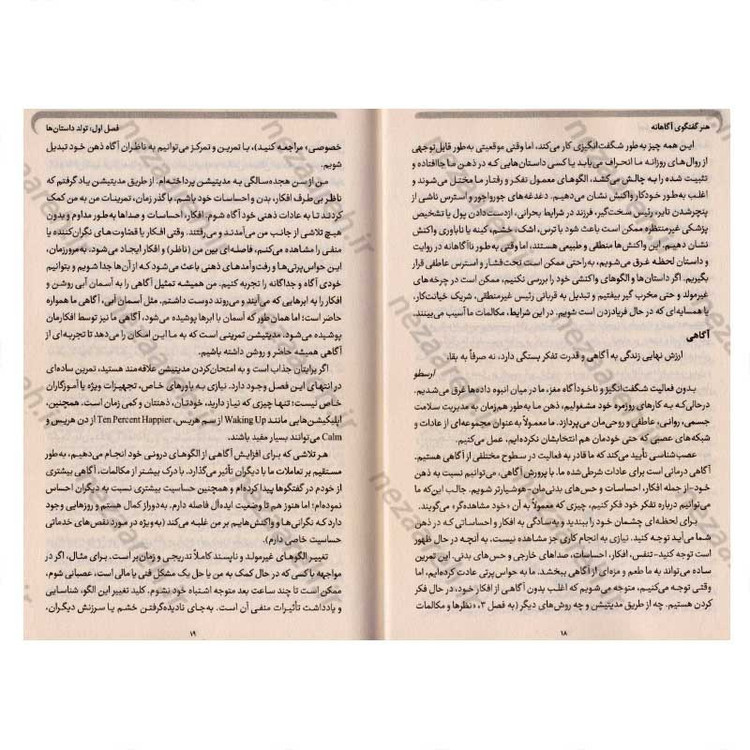 هنر گفتگوی آگاهانه
این همه چیز به‌طور شگفت‌انگیزی کار می‌کند، اما وقتی موقعیتی به‌طور قابل توجهی
از روال‌های روزانهٔ ما انحراف می‌یابد یا کسی داستان‌هایی که در ذهن ما جاافتاده و
تثبیت شده را به چالش می‌کشد، الگوهای معمول تفکر و رفتار ما مختل می‌شوند و
اغلب به‌طور خودکار واکنش نشان می‌دهیم. دغدغه‌های جورواجور و استرس ناشی از
پنچرشدن تایر، رئیس سخت‌گیر، فرزند در شرایط بحرانی، ازدست‌دادن پول یا تشخیص
پزشکی غیرمنتظره ممکن است باعث شود با ترس، اشک، خشم، کینه یا ناباوری واکنش
نشان دهیم. این واکنش‌ها منطقی و طبیعی هستند، اما وقتی به‌طور ناآگاهانه در روایت
و داستان لحظه غرق می‌شویم، به‌راحتی ممکن است تحت‌فشار و استرس عاطفی قرار
بگیریم. اگر داستان‌ها و الگوهای واکنشی خود را بررسی نکنیم، ممکن است در چرخه‌ای
غیرمولد و حتی مخرب گیر بیفتیم و تبدیل به قربانی رئیس غیرمنطقی، شریک خیانت‌کار،
یا همسایه‌ای که در حال فریادزدن است شویم. در این شرایط، مکالمات ما آسیب می‌بینند.
آگاهی
ارزش نهایی زندگی به آگاهی و قدرت تفکر بستگی دارد، نه صرفاً به بقا.
ارسطو
بدون فعالیت شگفت‌انگیز و ناخودآگاه مغز، ما در میان انبوه داده‌ها غرق می‌شدیم.
درحالی‌که به کارهای روزمرهٔ خود مشغولیم، ذهن ما به‌طور هم‌زمان به مدیریت سلامت
جسمی، روانی، عاطفی و روحی‌مان می‌پردازد. ما معمولاً به‌عنوان مجموعه‌ای از عادات و
شبکه‌های عصبی که حتی خودمان هم انتخابشان نکرده‌ایم، عمل می‌کنیم.
عصب‌شناسی تأیید می‌کند که ما قادر به فعالیت در سطوح مختلفی از آگاهی هستیم.
آگاهی درمانی است برای عادات شرطی‌شده ما. با پرورش آگاهی، می‌توانیم نسبت به ذهن
خود-از جمله افکار، احساسات و حس‌های بدنی‌مان-هوشیارتر شویم. جالب این‌که ما
می‌توانیم درباره تفکر خود فکر کنیم، چیزی که معمولاً به آن «خود مشاهده‌گر» می‌گویند.
برای لحظه‌ای چشمان خود را ببندید و به‌سادگی به افکار و احساساتی که در ذهن
شما می‌آید توجه کنید. نیازی به انجام کاری جز مشاهده نیست. به آنچه در حال ظهور
است توجه کنید-تنفس، افکار، احساسات، صداهای خارجی و حس‌های بدنی. این تمرین
ساده می‌تواند به ما طعم و مزه‌ای از آگاهی ببخشد. ما به حواس‌پرتی عادت کرده‌ایم، اما
وقتی توجه می‌کنیم، متوجه می‌شویم که اغلب بدون آگاهی از افکار خود، در حال فکر
کردن هستیم. چه از طریق مدیتیشن و چه روش‌های دیگر (به فصل ۳، «نظرها و مکالمات
۱۸
فصل اول: تولد داستان‌ها
خصوصی»، مراجعه کنید)، با تمرین و تمرکز می‌توانیم به ناظران آگاه ذهن خود تبدیل
شویم.
من از سن هجده‌سالگی به مدیتیشن پرداخته‌ام. از طریق مدیتیشن یاد گرفتم که
ناظر بی‌طرف افکار، بدن و احساسات خود باشم. با گذر زمان، تمرینات من به من کمک
کردند تا به عادات ذهنی خود آگاه شوم. افکار، احساسات و صداها به‌طور مداوم و بدون
هیچ تلاشی از جانب من می‌آمدند و می‌رفتند. وقتی افکار یا قضاوت‌های نگران‌کننده یا
منفی را مشاهده می‌کنم، فاصله‌ای بین من (ناظر) و افکار ایجاد می‌شود. به‌مرورزمان،
این حواس‌پرتی‌ها و رفت‌وآمدهای ذهنی باعث می‌شود که از آن‌ها جدا شویم و بتوانیم
آگاهی جدا و جداگانه را تجربه کنیم. من همیشه تمثیل آگاهی را به آسمان آبی روشن و
افکار را به ابرهایی که می‌آیند و می‌روند دوست داشتم. مثل آسمان آبی، آگاهی ما همواره
حاضر است؛ اما همان‌طور که آسمان با ابرها پوشیده می‌شود، آگاهی ما نیز توسط افکارمان
پوشیده می‌شود. مدیتیشن تمرینی است که به ما این امکان را می‌دهد تا تجربه‌ای از
آگاهی همیشه حاضر و روشن داشته باشیم.
اگر برایتان جذاب است و به امتحان‌کردن مدیتیشن علاقه‌مند هستید، تمرین ساده‌ای
در انتهای این فصل وجود دارد. نیازی به باورهای خاص، تجهیزات ویژه یا آموزگاران
خاص نیست؛ تنها چیزی که نیاز دارید، خودتان، ذهنتان و کمی زمان است. همچنین،
اپلیکیشن‌هایی مانند Waking Up از سم هریس، Ten Percent Happier از دن هریس و
Calm می‌توانند بسیار مفید باشند.
هر تلاشی که برای افزایش آگاهی از الگوهای درونی خود انجام می‌دهیم، به‌طور
مستقیم بر تعاملات ما با دیگران تأثیر می‌گذارد. با درک بیشتر از مکالمات، آگاهی بیشتری
از خودم در گفتگوها پیدا کرده‌ام و همچنین حساسیت بیشتری نسبت به دیگران احساس
نموده‌ام؛ اما هنوز هم تا وضعیت ایده‌آل فاصله دارم. به‌دوراز کمال هستم و روزهایی وجود
دارد که نگرانی‌ها و واکنش‌هایم بر من غلبه می‌کند (به‌ویژه در مورد نقص‌های خدماتی
حساسیت خاصی دارم).
تغییر الگوهای غیرمولد و ناپسند کاملاً تدریجی و زمان‌بر است. برای مثال، اگر در
مواجهه با کسی که در حال کمک به من یا حل یک مشکل فنی یا مالی است، عصبانی شوم،
ممکن است تا چند ساعت بعد متوجه اشتباه خود نشوم. کلید تغییر این الگو، شناسایی
و یادداشت تأثیرات منفی آن است. به‌جای نادیده‌گرفتن خشم یا سرزنش دیگران،
۱۹